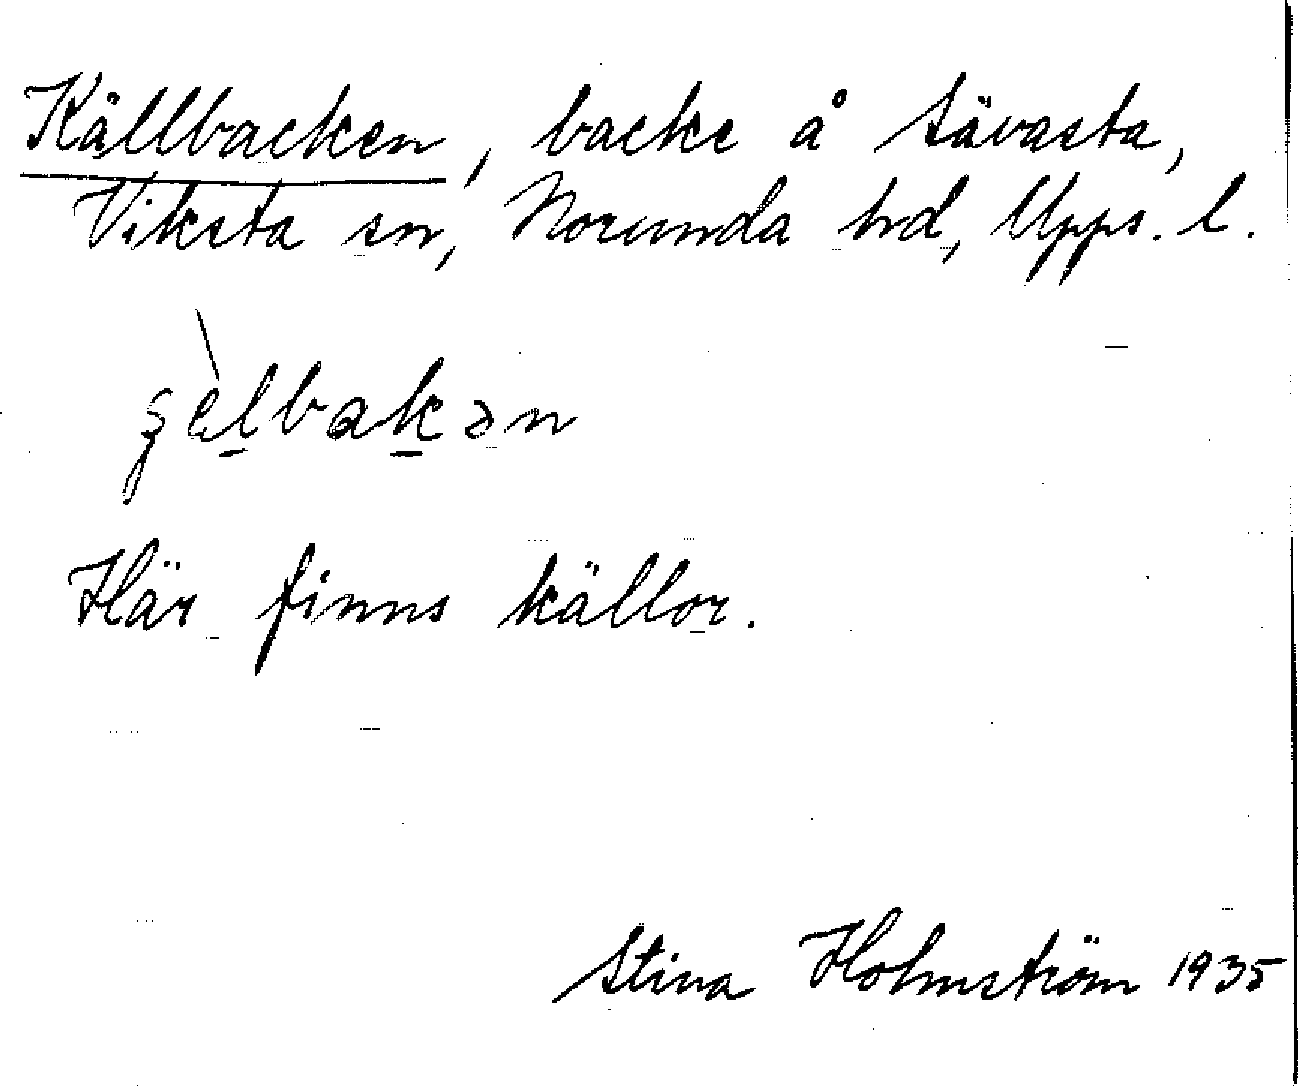 Källbacken, backe å Sävasta,
Viksta sn, Norunda hd, Upps. l.
Här finns källor.
Stina Holmström 1935